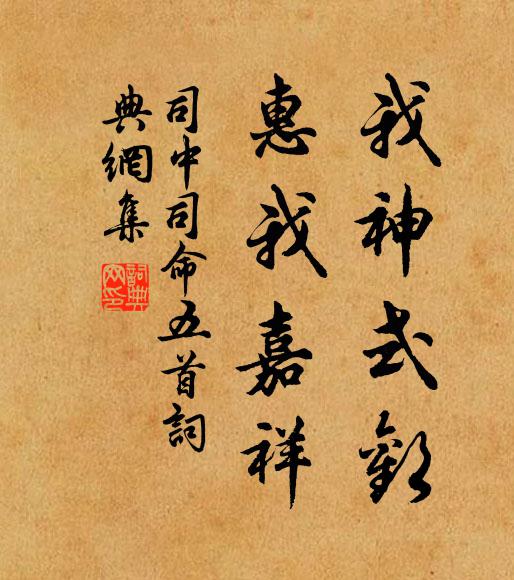 我神式歡
惠我嘉祥
司中司命五首詞
典網集
詞典
网印